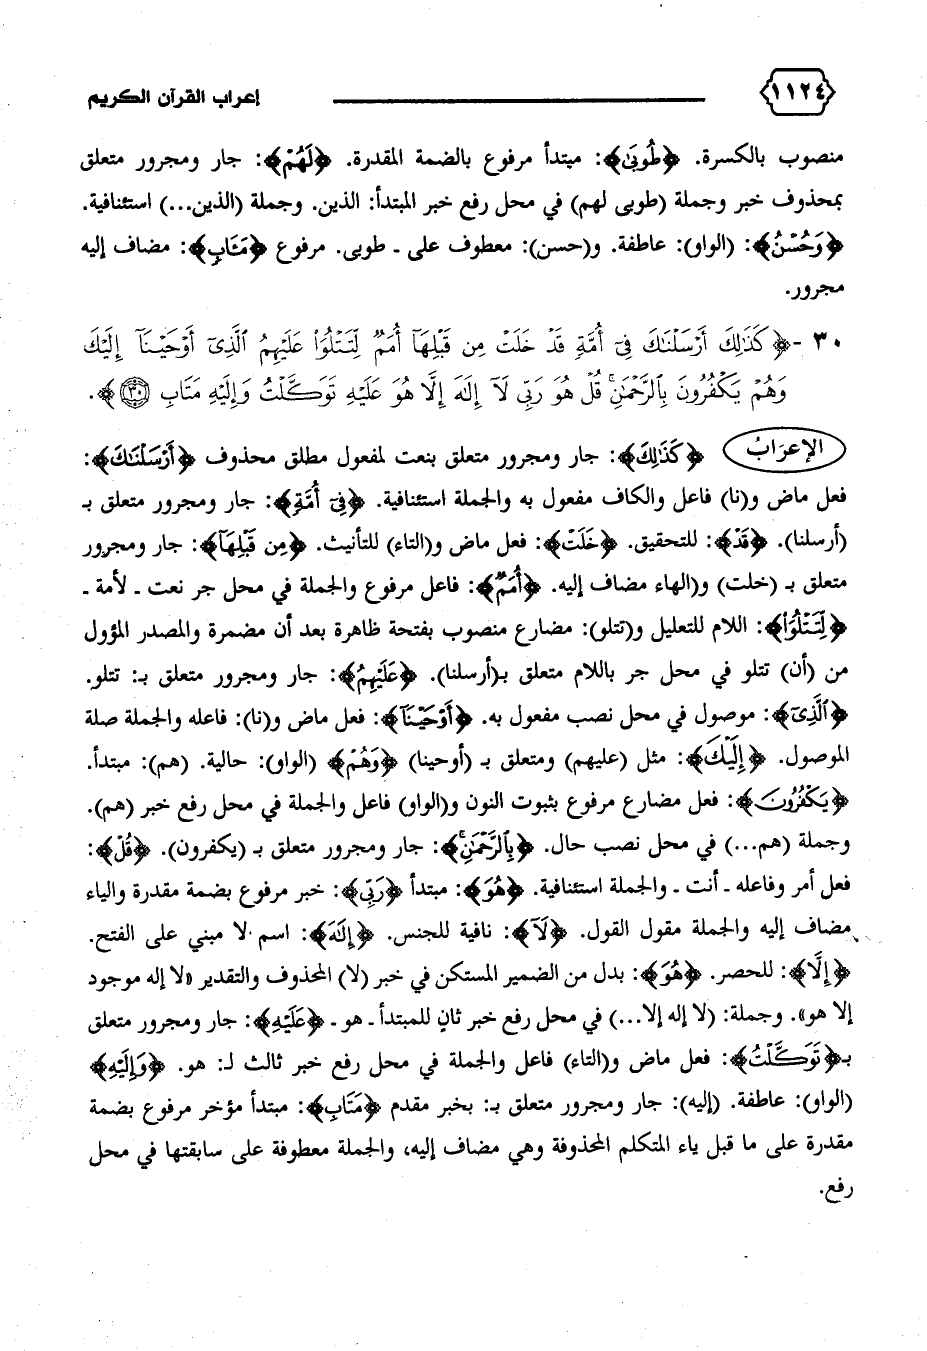 ١١٢٤ إعراب القرآن الكريم
منصوب بالكسرة. ﴿طُوبَىٰ﴾: مبتدأ مرفوع بالضمة المقدرة. ﴿لَهُمْ﴾: جار ومجرور متعلق
بمحذوف خبر وجملة (طوبى لهم) في محل رفع خبر المبتدأ: الذين. وجملة (الذين...) استئنافية.
﴿وَحُسْنُ﴾: (الواو): عاطفة. و(حسن): معطوف على ـ طوبى. مرفوع ﴿مَـَٔابٍ﴾: مضاف إليه
مجرور.
٣٠ -﴿كَذَٰلِكَ أَرْسَلْنَٰكَ فِىٓ أُمَّةٍ قَدْ خَلَتْ مِن قَبْلِهَآ أُمَمٌ لِّتَتْلُوَا۟ عَلَيْهِمُ ٱلَّذِىٓ أَوْحَيْنَآ إِلَيْكَ
وَهُمْ يَكْفُرُونَ بِٱلرَّحْمَٰنِ ۚ قُلْ هُوَ رَبِّى لَآ إِلَٰهَ إِلَّا هُوَ عَلَيْهِ تَوَكَّلْتُ وَإِلَيْهِ مَتَابِ ٣٠﴾.
الإعرَابُ ﴿كَذَٰلِكَ﴾: جار ومجرور متعلق بنعت لمفعول مطلق محذوف ﴿أَرْسَلْنَٰكَ﴾:
فعل ماض و(نا) فاعل والكاف مفعول به والجملة استئنافية. ﴿فِىٓ أُمَّةٍ﴾: جار ومجرور متعلق بـ
(أرسلنا). ﴿قَدْ﴾: للتحقيق. ﴿خَلَتْ﴾: فعل ماض و(التاء) للتأنيث. ﴿مِن قَبْلِهَآ﴾: جار ومجرور
متعلق بـ (خلت) و(الهاء مضاف إليه. ﴿أُمَمٌ﴾: فاعل مرفوع والجملة في محل جر نعت ـ لأمة ـ
﴿لِّتَتْلُوَا۟﴾: اللام للتعليل و(تتلو): مضارع منصوب بفتحة ظاهرة بعد أن مضمرة والمصدر المؤول
من (أن) تتلو في محل جر باللام متعلق بـ(أرسلنا). ﴿عَلَيْهِمُ﴾: جار ومجرور متعلق بـ: تتلو.
﴿ٱلَّذِىٓ﴾: موصول في محل نصب مفعول به. ﴿أَوْحَيْنَآ﴾: فعل ماض و(نا): فاعله والجملة صلة
الموصول. ﴿إِلَيْكَ﴾: مثل (عليهم) ومتعلق بـ (أوحينا) ﴿وَهُمْ﴾ (الواو): حالية. (هم): مبتدأ.
﴿يَكْفُرُونَ﴾: فعل مضارع مرفوع بثبوت النون و(الواو) فاعل والجملة في محل رفع خبر (هم).
وجملة (هم...) في محل نصب حال. ﴿بِٱلرَّحْمَٰنِ ۚ﴾: جار ومجرور متعلق بـ (يكفرون). ﴿قُلْ﴾:
فعل أمر وفاعله ـ أنت ـ والجملة استئنافية. ﴿هُوَ﴾: مبتدأ ﴿رَبِّى﴾: خبر مرفوع بضمة مقدرة والياء
مضاف إليه والجملة مقول القول. ﴿لَآ﴾: نافية للجنس. ﴿إِلَٰهَ﴾: اسم لا مبني على الفتح.
﴿إِلَّا﴾: للحصر. ﴿هُوَ﴾: بدل من الضمير المستكن في خبر (لا) المحذوف والتقدير «لا إله موجود
إلا هو». وجملة: (لا إله إلا...) في محل رفع خبر ثانٍ للمبتدأ ـ هو ـ ﴿عَلَيْهِ﴾: جار ومجرور متعلق
بـ﴿تَوَكَّلْتُ﴾: فعل ماض و(التاء) فاعل والجملة في محل رفع خبر ثالث لـ: هو. ﴿وَإِلَيْهِ﴾
(الواو): عاطفة. (إليه): جار ومجرور متعلق بـ: بخبر مقدم ﴿مَتَابِ﴾: مبتدأ مؤخر مرفوع بضمة
مقدرة على ما قبل ياء المتكلم المحذوفة وهي مضاف إليه، والجملة معطوفة على سابقتها في محل
رفع.